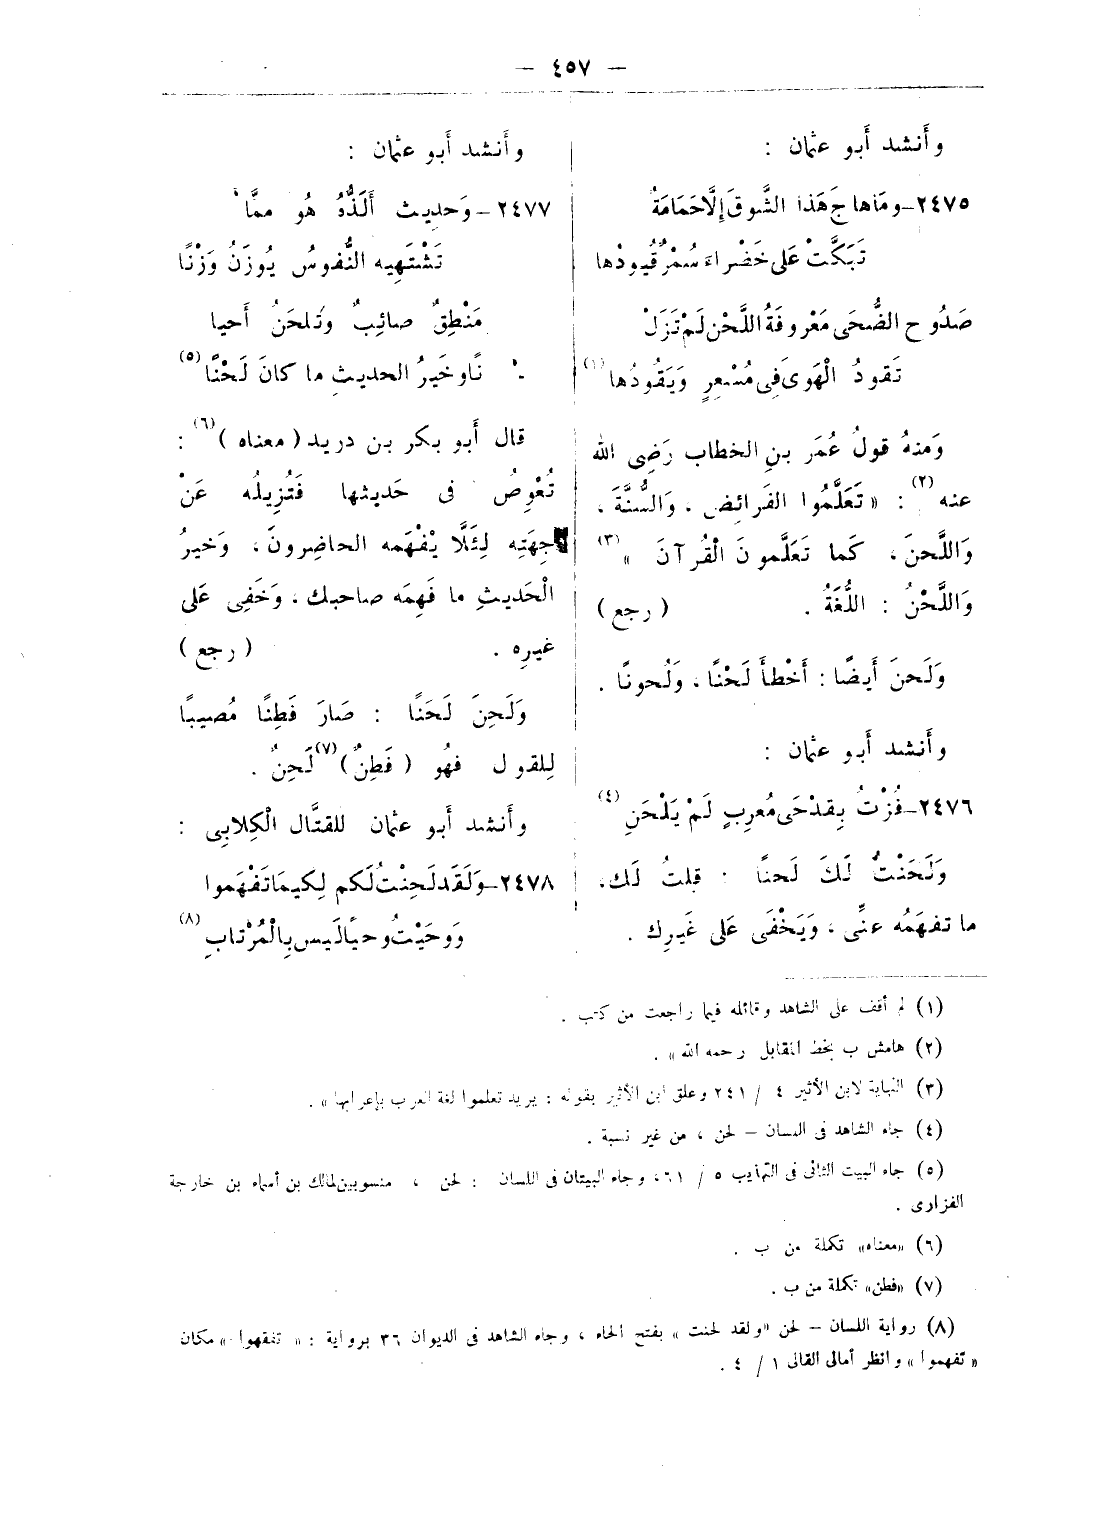 — ٤٥٧ —
وأَنشد أَبو عثمان :
٢٤٧٥ــ ومَاهاجَ هَذا الشَّوقَ إلَّا حَمامَةٌ
تَبَكَّتْ عَلى خَضْراءَ سُمْرٌ قُيودُها
صَدُوح الضُّحَى مَعْروفَةُ اللَّحْن لَمْ تَزَلْ
تَقودُ الْهَوى فِى مُسْعِرٍ وَيَقُودُها (١)
وَمنهُ قولُ عُمَر بنِ الخطاب رَضِى الله
عنه (٢) : « تَعَلَّمُوا الفَرائِض ، وَالسُّنَّةَ ،
وَاللَّحنَ ، كَما تَعَلَّمونَ الْقُرآنَ » (٣)
وَاللَّحْنُ : اللُّغَةُ . ( رجع )
وَلَحنَ أَيضًا : أَخْطأَ لَحْنًا ، وَلُحونًا .
وأَنشد أَبو عثمان :
٢٤٧٦ــ فُزْتُ بِقدْحَى مُعرِبٍ لَمْ يَلْحَنِ (٤)
وَلَحَنْتُ لَكَ لَحنًا : قلتُ لَك ،
ما تفهَمُه عنِّى ، وَيَخْفَى عَلى غَيرِك .
وأَنشد أَبو عثمان :
٢٤٧٧ــ وَحَدِيث أَلَذُّهُ هُو ممَّا
تَشْتَهِيه النُّفوسُ يُوزَنُ وَزْنًا
مَنْطِقٌ صائِبٌ وتَلحَنُ أَحيا
نًا وخَيرُ الحديثِ ما كانَ لَحْنًا (٥)
قال أَبو بكر بن دريد ( معناه ) (٦) :
تُعْوِصُ فى حَديثها فَتُزِيلُه عَنْ
جِهَتِه لِئَلَّا يْفْهَمه الحاضِرونَ ، وَخيرُ
الْحَديثِ ما فَهِمَه صاحبك ، وَخَفِى عَلى
غيرِه . ( رجع )
وَلَحِنَ لَحَنًا : صَارَ فَطِنًا مُصيبًا
لِلقول فهُو ( فَطِنٌ ) (٧) لَحِنٌ .
وأَنشد أَبو عثمان للقتَّال الْكِلابِى :
٢٤٧٨ــ وَلَقَد لَحِنْتُ لَكم لِكيمَا تَفْهَموا
وَوحَيْتُ وحيًا لَيس بِالْمُرْتابِ (٨)
(١) لم أقف على الشاهد وقائله فيما راجعت من كتب .
(٢) هامش ب بخط المقابل رحمه الله » .
(٣) النهاية لابن الأثير ٤ / ٢٤١ وعلق ابن الأثير بقوله : يريد تعلموا لغة العرب بإعرابها » .
(٤) جاء الشاهد فى اللسان – لحن ، من غير نسبة .
(٥) جاء البيت الثانى فى التهذيب ٥ / ٦١ ، وجاء البيتان فى اللسان : لحن ، منسوبين لمالك بن أسماء بن خارجة
الفزارى .
(٦) «معناه» تكملة من ب .
(٧) «فطن» تكملة من ب .
(٨) رواية اللسان – لحن «ولقد لحنت » بفتح الحاء ، وجاء الشاهد فى الديوان ٣٦ برواية : « تفقهوا » مكان
« تفهموا » وانظر أمالى القالى ١ / ٤ .